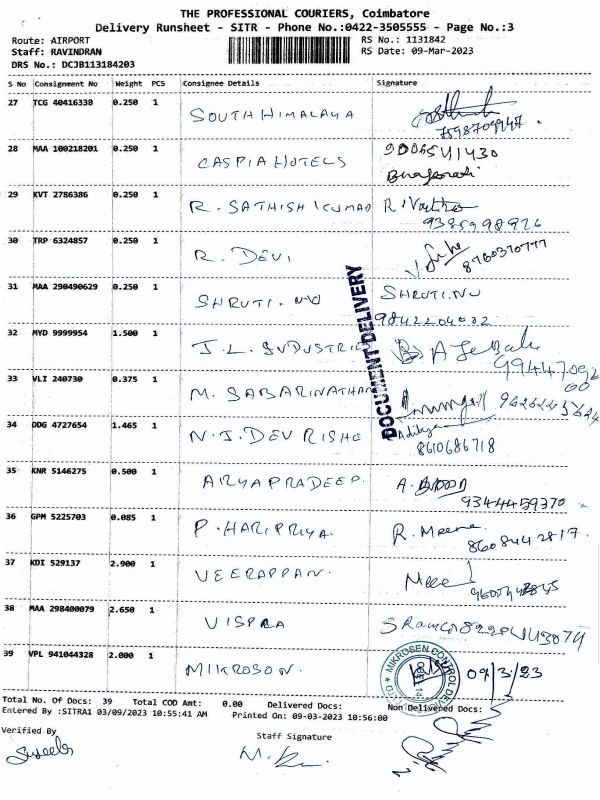 THE PROFESSIONAL COURIERS, Coimbatore
Delivery Runsheet - SITR - Phone No.:0422-3505555 - Page No.:3
Route: AIRPORT RS No.: 1131842
Staff: RAVINDRAN RS Date: 09-Mar-2023
DRS No.: DCJB113184203
S No Consignment No Weight PCS Consignee Details Signature
27 TCG 40416330 0.250 1 SOUTH HIMALAYA
7598709947
28 MAA 100218201 0.250 1 CASPIA HOTELS
29 KVT 2786386 0.250 1 R. SATHISH KUMAR
9385998926
30 TRP 6324857 0.250 1 R. DEVI
8760370777
31 MAA 290490629 0.250 1 SHRUTI. NV SHRUTI.NV
32 MYD 9999954 1.500 1 J.L. INDUSTRIES
33 VLI 240730 0.375 1 M. SABARINATHAN
DOCUMENT DELIVERY
34 DDG 4727654 1.465 1 N.J. DEV RISHE Aditya
8610686718
35 KNR 5146275 0.500 1 ARYAPRADEEP. A.
9344459370
36 GPM 5225703 0.085 1 P. HARIPRIYA. R. Meena
8608442817.
37 KDI 529137 2.900 1 VEERAPPAN.
38 MAA 298400079 2.650 1 VISPRA
39 VPL 941044328 2.000 1 MIKROSON. 09/3/23
MIKROSEN CONTROL
Total No. Of Docs: 39 Total COD Amt: 0.00 Delivered Docs: Non Delivered Docs:
Entered By :SITRA1 03/09/2023 10:55:41 AM Printed On: 09-03-2023 10:56:00
Verified By Staff Signature